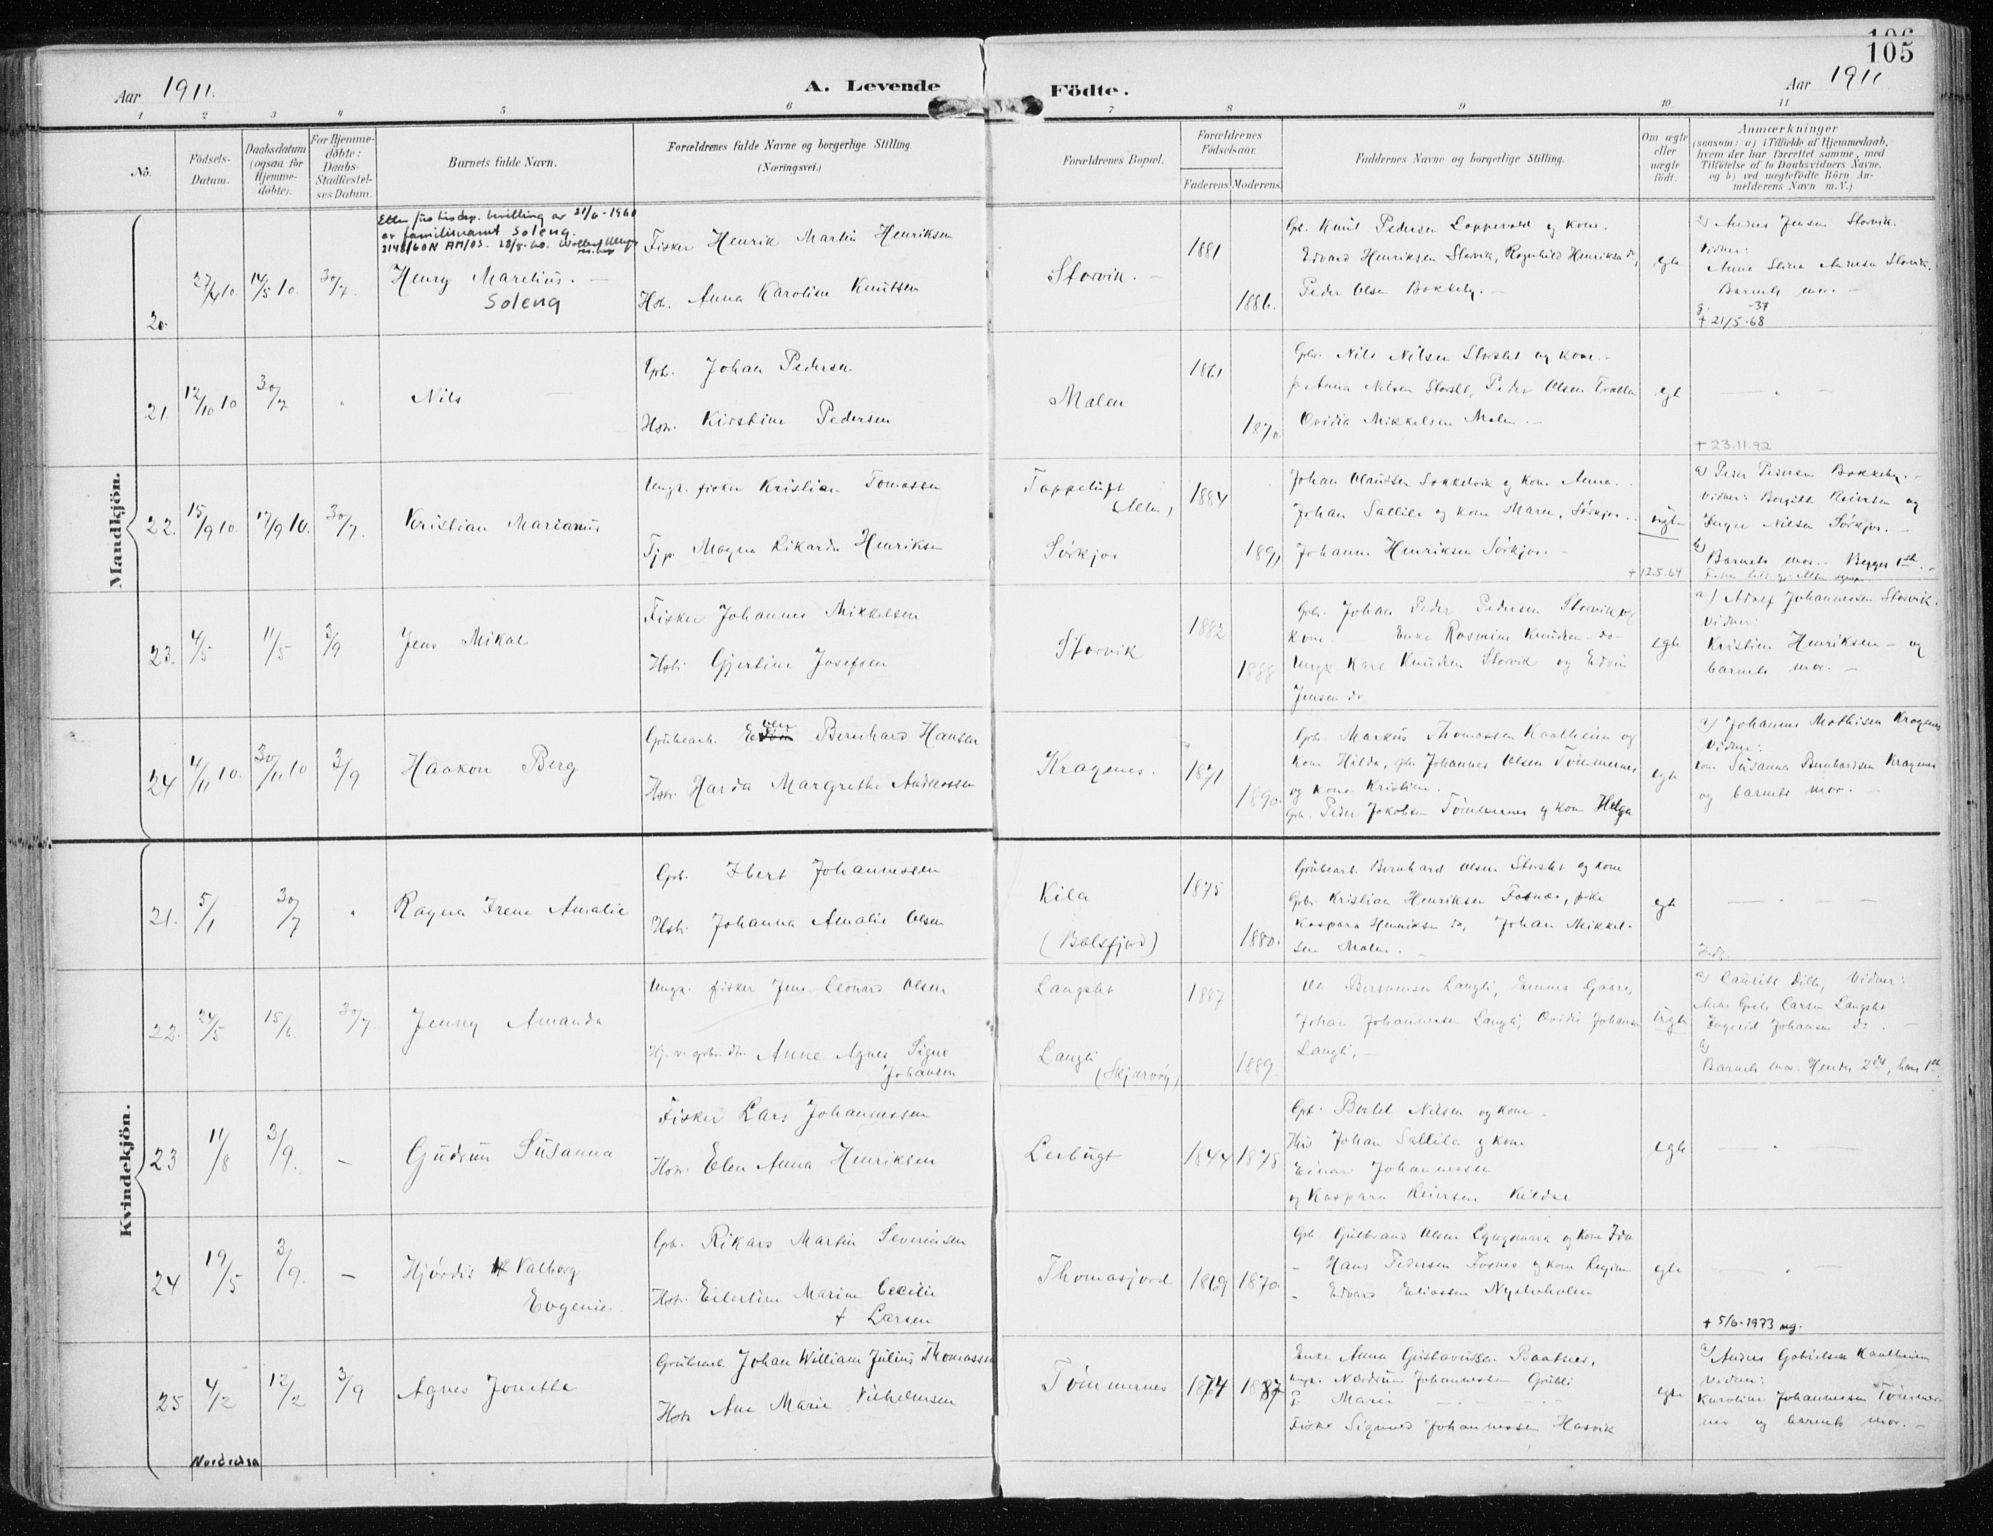 106
105
Aar 1911.
A. Levende
Födte.
Aar 1911
1 2 3 4 5 6 7 8 9 10 11
No.
Födsels-
Datum.
Daabsdatum
(ogsaa for
Hjemme-
döbte).
For Hjemme-
döbte:
Daabs-
Stadfæstel-
ses Datum.
Barnets fulde Navn.
Forældrenes fulde Navne og borgerlige Stilling.
(Næringsvei.)
Forældrenes Bopæl.
Forældrenes
Födselsaar.
Faderens.
Moderens.
Faddernes Navne og borgerlige Stilling.
Om ægte
eller
uægte
födt.
Anmærkninger
(saasom: a) i Tilfælde af Hjemmedaab,
hvem der har forrettet samme, med
Tilföielse af to Daabsvidners Navne,
og b) ved uægtefödte Börn An-
melderens Navn m.V.)
Mandkjön.
20.
27/4 10.
14/5 10.
30/7.
bevilling av 21/6-1960
av familienavnet Soleng.
Henry Marelius. —
Soleng
Fisker Henrik Martin Henriksen
Hstr. Anna Karoline Knutsen
Storvik. —
1881
1886.
Gb. Knut Pedersen Loppevold og kone.
Edvard Henriksen Storvik, Ragnhild Henriksen do,
Peder Olsen Bakkeby. —
egte
a) Anders Jensen Storvik.
Vidner:
Anne Stina Andersen Storvik.
Barnets mor. —
g. -37
+ 21/5-68
21.
12/10 10
30/7
Nils
Gbr. Johan Pedersen
Hstr. Kirstine Pedersen
Malen
1861
1870.
Gbr. Nils Nilsen Storslet og kone. —
p. Anna Nilsen Storslet, Peder Olsen
Ovidia Mikkelsen Malen. —
egte
+ 23.11.92
22.
15/9 10.
17/9 10.
30/7.
Kristian Marianus
Ungk. fisker Kristian Tomassen
Tjp. Magna Rikarda Henriksen
Toppeluft
(Alten)
Sørkjos
1884
1891
Johan Sallila og kone Maren, Sørkjos. .
Johanne Henriksen Sørkjos. —
+ 12.5.64
uegte
a) Peder Pedersen Bakkeby. —
Vidner: Borgitte Reiersen og
Inger Nilsen Sørkjos. —
b)
Barnets mor. Begges 1ste. —
23.
4/5
11/5
3/9
Jens Mikal
Fisker Johannes Mikkelsen
Hstr. Gjertine Josefsen
Storvik
1882
1888
Gbr. Johan Peder Pedersen Storvik og
kone. — Enke Rasmine Knudsen do
Ungk. Karl Knudsen Storvik og Edvin
Jensen do
egte
a) Adolf Johannessen Storvik.
Vidner:
Kristine Henriksen — og
barnets mor. —
24
4/11 10.
30/11 10
3/9
Haakon Berg
Grubearb. Bernhard Hansen
Hstr. Harda Margrethe Andreassen
Kragenes.
1871
1890.
Gbr. Markus Thomassen Kaatheim og
kone Hilda, gbr. Johannes Olsen Tømmernes
og kone Kristine.
Gbr. Peder Jakobsen Tømmernes og kone Helga
egte
a) Johannes Mathisen Kragenes
Vidner:
kone Susanna Bernhardsen Kragenes
og barnets mor. —
Kvindekjön.
21.
5/1
30/7
Ragna Irene Amalie
Gbr. Ibert Johannessen
Hstr. Johanna Amalie Olsen
Kila
(Balsfjord)
1875
1880.
Grubearb. Bernhard Olsen Storslet og kone
Gbr. Kristian Henriksen Fosnæs, pike
Kaspara Henriksen do, Johan Mikkel-
sen Malen. —
egte
22.
24/5
15/6.
30/7.
Jenny Amanda
Ungk. fisker Jens Leonard Olsen
Anne Agnes Signe
Johansen
Langslet
Langli
(Skjærvøy)
1887
1889.
Johan Johannessen Langli, Ovidie Johansen
Langli, —
uegte
a) Laurits Dille, Vidner:
Ingrid Johansen do. —
b)
Barnets mor. Hendes 2det, hans 1ste.
23
11/8
3/9.
—
Gudrun Susanna
Fisker Lars Johannessen
Hstr. Elen Anna Henriksen
Lerbugt
1844
1878
Gbr. Bertel Nilsen og kone —
Johan Sallila og kone
Einar Johannessen
og Kaspara Reiersen Kildal
egte
24
19/5
3/9.
—
Hjørdis Valborg
Eugenie.
Gbr. Rikard Martin Severinsen
Hstr. Eilertine Marine Cecilie
+ Larsen
Thomasjord
1869
1870.
Gbr. Gulbrand Olsen Lyngsmark og kone Ida
— Hans Pedersen Fosnes og kone Regine
— Edvard Eliassen Nyelvholm
egte
+ 5/6-1973 mg.
25
4/2
12/2
3/9
Agnes Jonette
Grubearb. Johan William Julius Thomassen
Hstr. Ane Marie Vilhelmsen
Tømmernes
1874
1887
Enke Anna Gustavussen Baatnes,
ungk. Nordrum Johannessen Grubli
P. Marie — . — . —
Fisker Sigurd Johannessen Hasvik
egte
a) Anders Gabrielsen Kaatheim
Vidner:
Karoline Johannessen Tømmer-
nes og barnets mor. —
Nordreisa